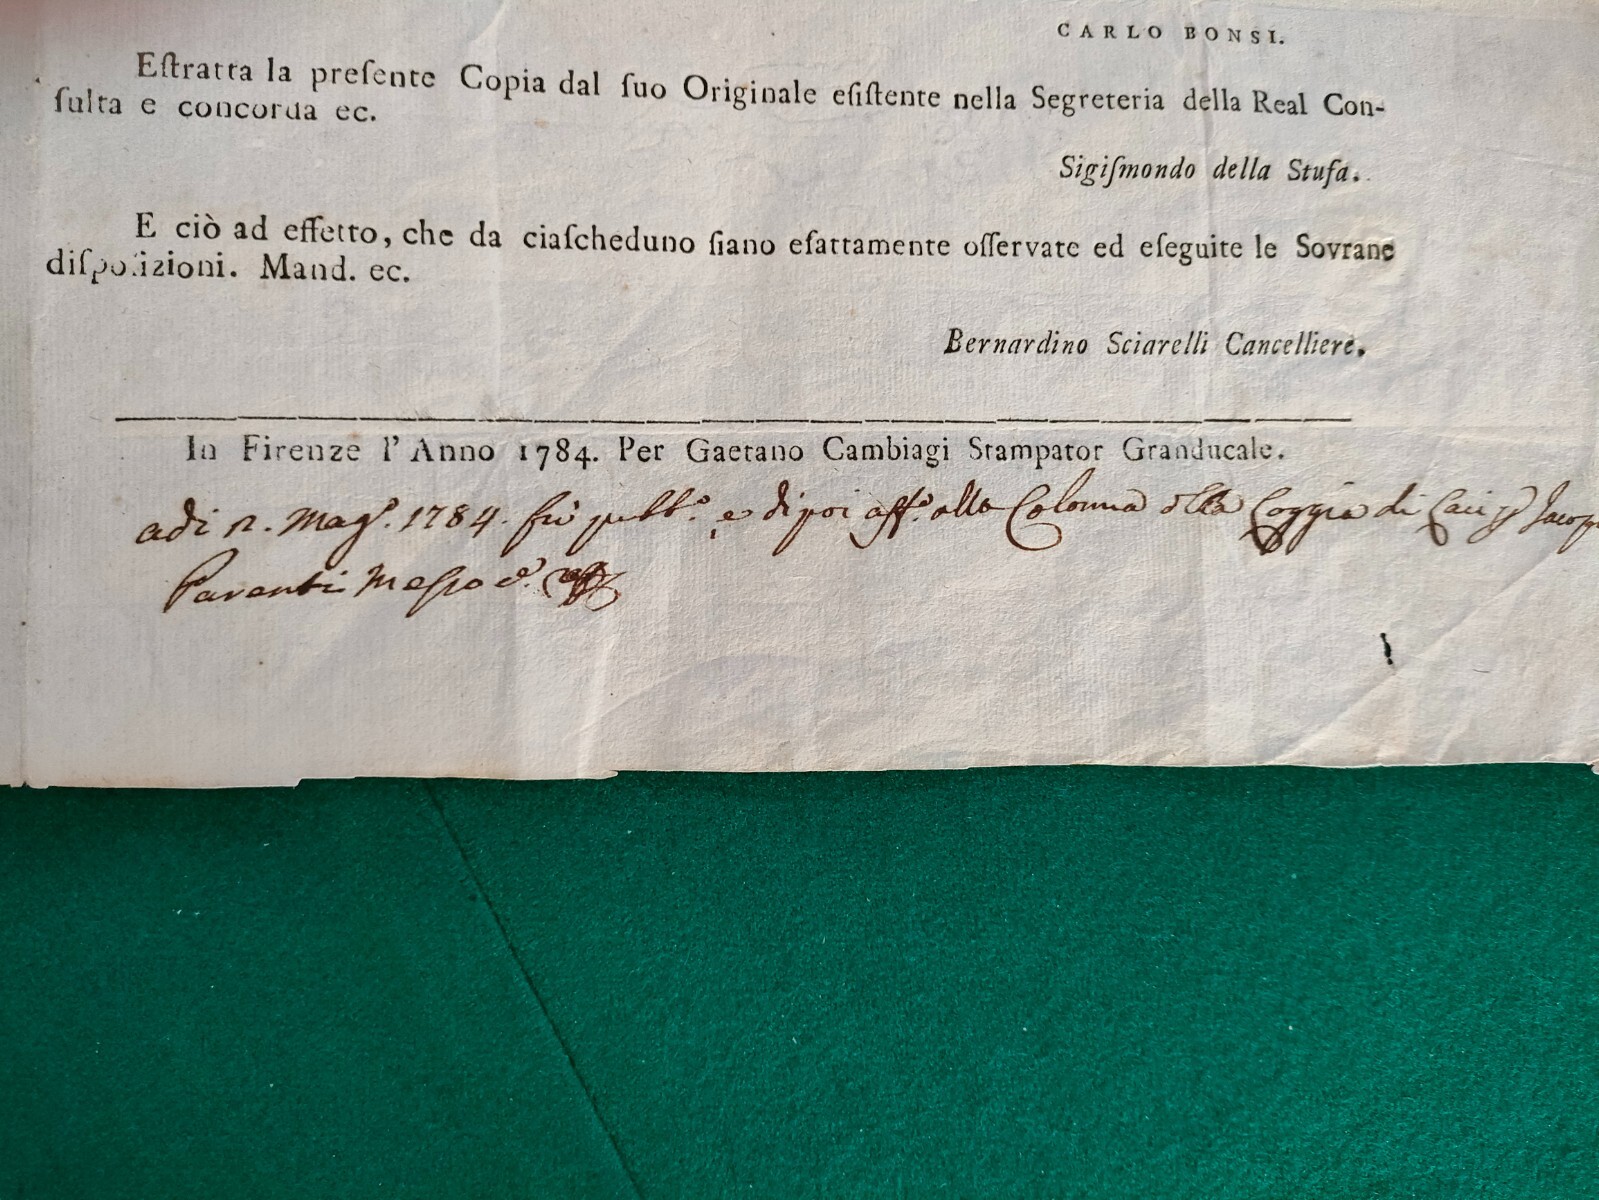 CARLO BONSI.
Eſtratta la preſente Copia dal ſuo Originale eſiſtente nella Segreteria della Real Con-
ſulta e concorda ec.
Sigiſmondo della Stufa.
E ciò ad effetto, che da ciaſcheduno ſiano eſattamente oſſervate ed eſeguite le Sovrane
diſpoſizioni. Mand. ec.
Bernardino Sciarelli Cancelliere.
In Firenze l' Anno 1784. Per Gaetano Cambiagi Stampator Granducale.
adi 12. Magº. 1784. fù pubbº. e dipoi affº. alla Colonna della Loggia di Jacopo
Parenti Messo